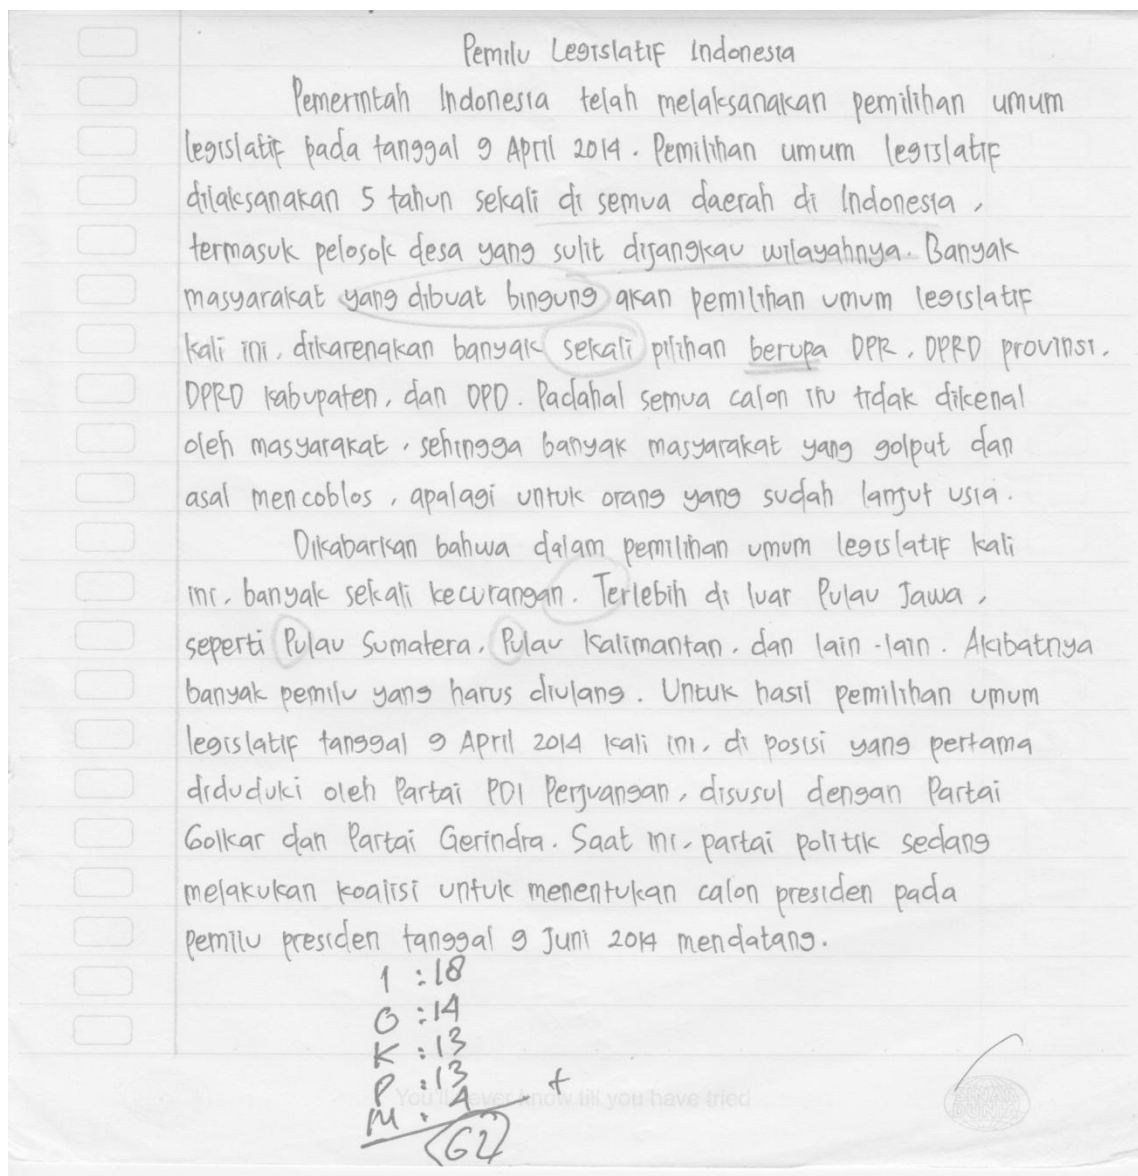 Pemilu Legislatif Indonesia
Pemerintah Indonesia telah melaksanakan pemilihan umum
legislatif pada tanggal 9 April 2014. Pemilihan umum legislatif
dilaksanakan 5 tahun sekali di semua daerah di Indonesia,
termasuk pelosok desa yang sulit dijangkau wilayahnya. Banyak
masyarakat yang dibuat bingung akan pemilihan umum legislatif
kali ini, dikarenakan banyak sekali pilihan berupa DPR, DPRD provinsi,
DPRD kabupaten, dan DPD. Padahal semua calon itu tidak dikenal
oleh masyarakat, sehingga banyak masyarakat yang golput dan
asal mencoblos, apalagi untuk orang yang sudah lanjut usia.
Dikabarkan bahwa dalam pemilihan umum legislatif kali
ini, banyak sekali kecurangan. Terlebih di luar Pulau Jawa,
seperti Pulau Sumatera, Pulau Kalimantan, dan lain-lain. Akibatnya
banyak pemilu yang harus diulang. Untuk hasil pemilihan umum
legislatif tanggal 9 April 2014 kali ini, di posisi yang pertama
diduduki oleh Partai PDI Perjuangan, disusul dengan Partai
Golkar dan Partai Gerindra. Saat ini, partai politik sedang
melakukan koalisi untuk menentukan calon presiden pada
pemilu presiden tanggal 9 Juni 2014 mendatang.
I : 18
O : 14
K : 13
P : 13
M : 4 +
62
You'll never know till you have tried